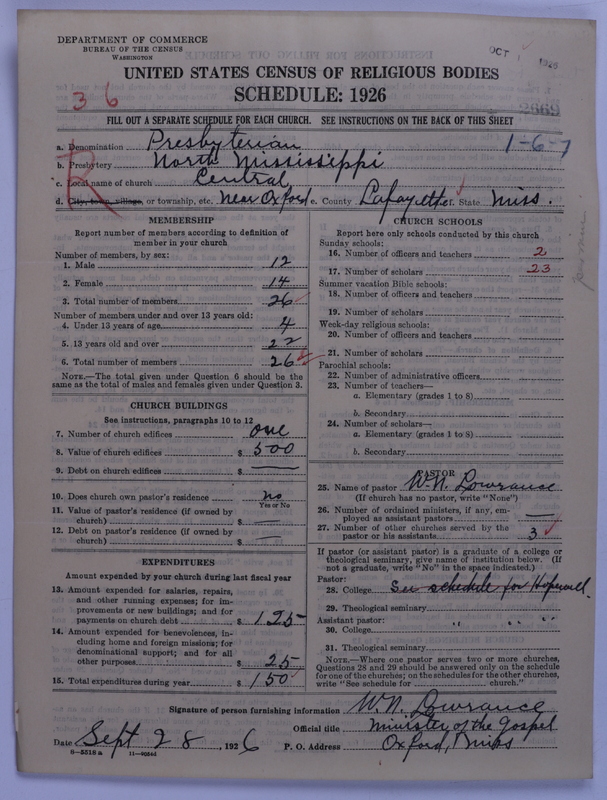 DEPARTMENT OF COMMERCE
BUREAU OF THE CENSUS
WASHINGTON
OCT 1926
UNITED STATES CENSUS OF RELIGIOUS BODIES
SCHEDULE: 1926
36
2669
FILL OUT A SEPARATE SCHEDULE FOR EACH CHURCH. SEE INSTRUCTIONS ON THE BACK OF THIS SHEET
R
a. Denomination Presbyterian 1-6-7
b. Presbytery North Mississippi
c. Local name of church Central
d. City, town, village, or township, etc. Near Oxford e. County Lafayette f. State Miss.
MEMBERSHIP
Report number of members according to definition of
member in your church
Number of members, by sex:
1. Male 12
2. Female 14
3. Total number of members 26
Number of members under and over 13 years old:
4. Under 13 years of age 4
5. 13 years old and over 22
6. Total number of members 26
NOTE.—The total given under Question 6 should be the
same as the total of males and females given under Question 3.
CHURCH BUILDINGS
See instructions, paragraphs 10 to 12
7. Number of church edifices one
8. Value of church edifices $ 500
9. Debt on church edifices $ —
10. Does church own pastor's residence No
Yes or No
11. Value of pastor's residence (if owned by
church) $ —
12. Debt on pastor's residence (if owned by
church) $ —
EXPENDITURES
Amount expended by your church during last fiscal year
13. Amount expended for salaries, repairs,
and other running expenses; for im-
provements or new buildings; and for
payments on church debt $ 125
14. Amount expended for benevolences, in-
cluding home and foreign missions; for
denominational support; and for all
other purposes $ 25
15. Total expenditures during year $ 150
CHURCH SCHOOLS
Report here only schools conducted by this church
Sunday schools:
16. Number of officers and teachers 2
17. Number of scholars 23
Summer vacation Bible schools:
18. Number of officers and teachers
19. Number of scholars
Week-day religious schools:
20. Number of officers and teachers
21. Number of scholars
Parochial schools:
22. Number of administrative officers
23. Number of teachers—
a. Elementary (grades 1 to 8)
b. Secondary
24. Number of scholars—
a. Elementary (grades 1 to 8)
b. Secondary
PASTOR
25. Name of pastor W.N. Lowrance
(If church has no pastor, write "None")
26. Number of ordained ministers, if any, em-
ployed as assistant pastors —
27. Number of other churches served by the
pastor or his assistants 3
If pastor (or assistant pastor) is a graduate of a college or
theological seminary, give name of institution below. (If
not a graduate, write "No" in the space indicated.)
Pastor:
28. College See schedule for Hopewell
29. Theological seminary
Assistant pastor:
30. College " " "
31. Theological seminary
NOTE.—Where one pastor serves two or more churches,
Questions 28 and 29 should be answered only on the schedule
for one of the churches; on the schedules for the other churches,
write "See schedule for church."
Signature of person furnishing information W.N. Lowrance
Official title Minister of the Gospel
Date Sept 28, 1926 P. O. Address Oxford, Miss
8—5518 a